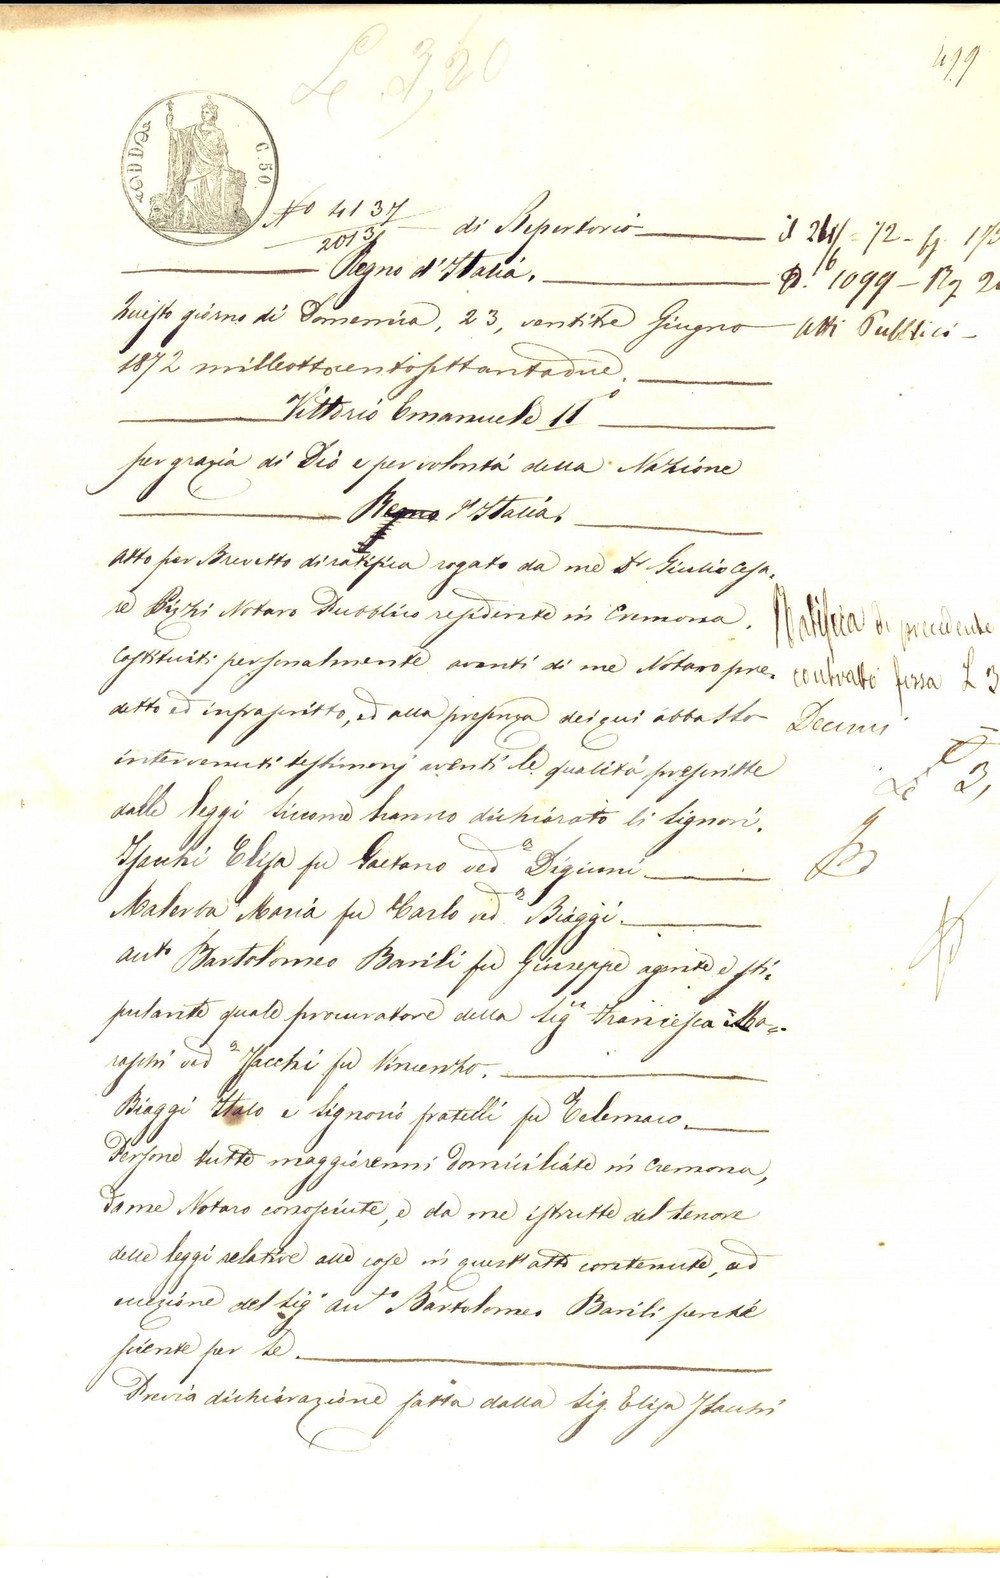 499
L 3,20
C. 50
N° 4137 / 2013 di Repertorio
il 24/6 = 72 - fg. 173
Regno d'Italia.
N.° 1099 - Rg 2
Questo giorno di Domenica, 23, ventitre Giugno
Atti Pubblici -
1872 milleottocentosettantadue.
Vittorio Emanuele II°
per grazia di Dio e per volontà della Nazione
Regno d'Italia.
Atto per Brevetto di ratifica rogato da me Dr Giulio Cesa-
re Pizzi Notaro Pubblico residente in Cremona.
Ratifica di precedente
Costituiti personalmente avanti di me Notaro pre-
contratto fissa L 3
detto ed infrascritto, ed alla presenza dei qui abbasso
Decimi
intervenuti testimonj aventi le qualità prescritte
L 3,
dalle leggi siccome hanno dichiarato li Signori.
Isacchi Elisa fu Gaetano ved.a Digiuni
Malerba Maria fu Carlo ved.a Biaggi.
avt° Bartolomeo Barili fu Giuseppe agente e sti-
pulante quale procuratore della Sig.ra Francesca Ma-
raschi ved.a Isacchi fu Vincenzo.
Biaggi Italo e Signorio fratelli fu Telemaco.
Persone tutte maggiorenni domiciliate in Cremona,
da me Notaro conosciute, e da me istrutte del tenore
delle leggi relative alle cose in quest'atto contenute, ad
eccezione del Sig.r avt.° Bartolomeo Barili perchè
sciente per se.
Previa dichiarazione fatta dalla Sig. Elisa Isacchi